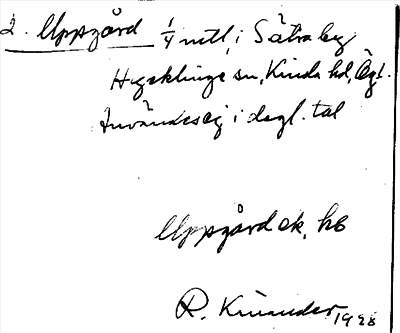 2. Uppgård 1/4 mtl, i Sätra by
Hycklinge sn, Kinda hd, Ögl.
Användes ej i dagl. tal
Uppgård ek. kb
R. Kinander 1928